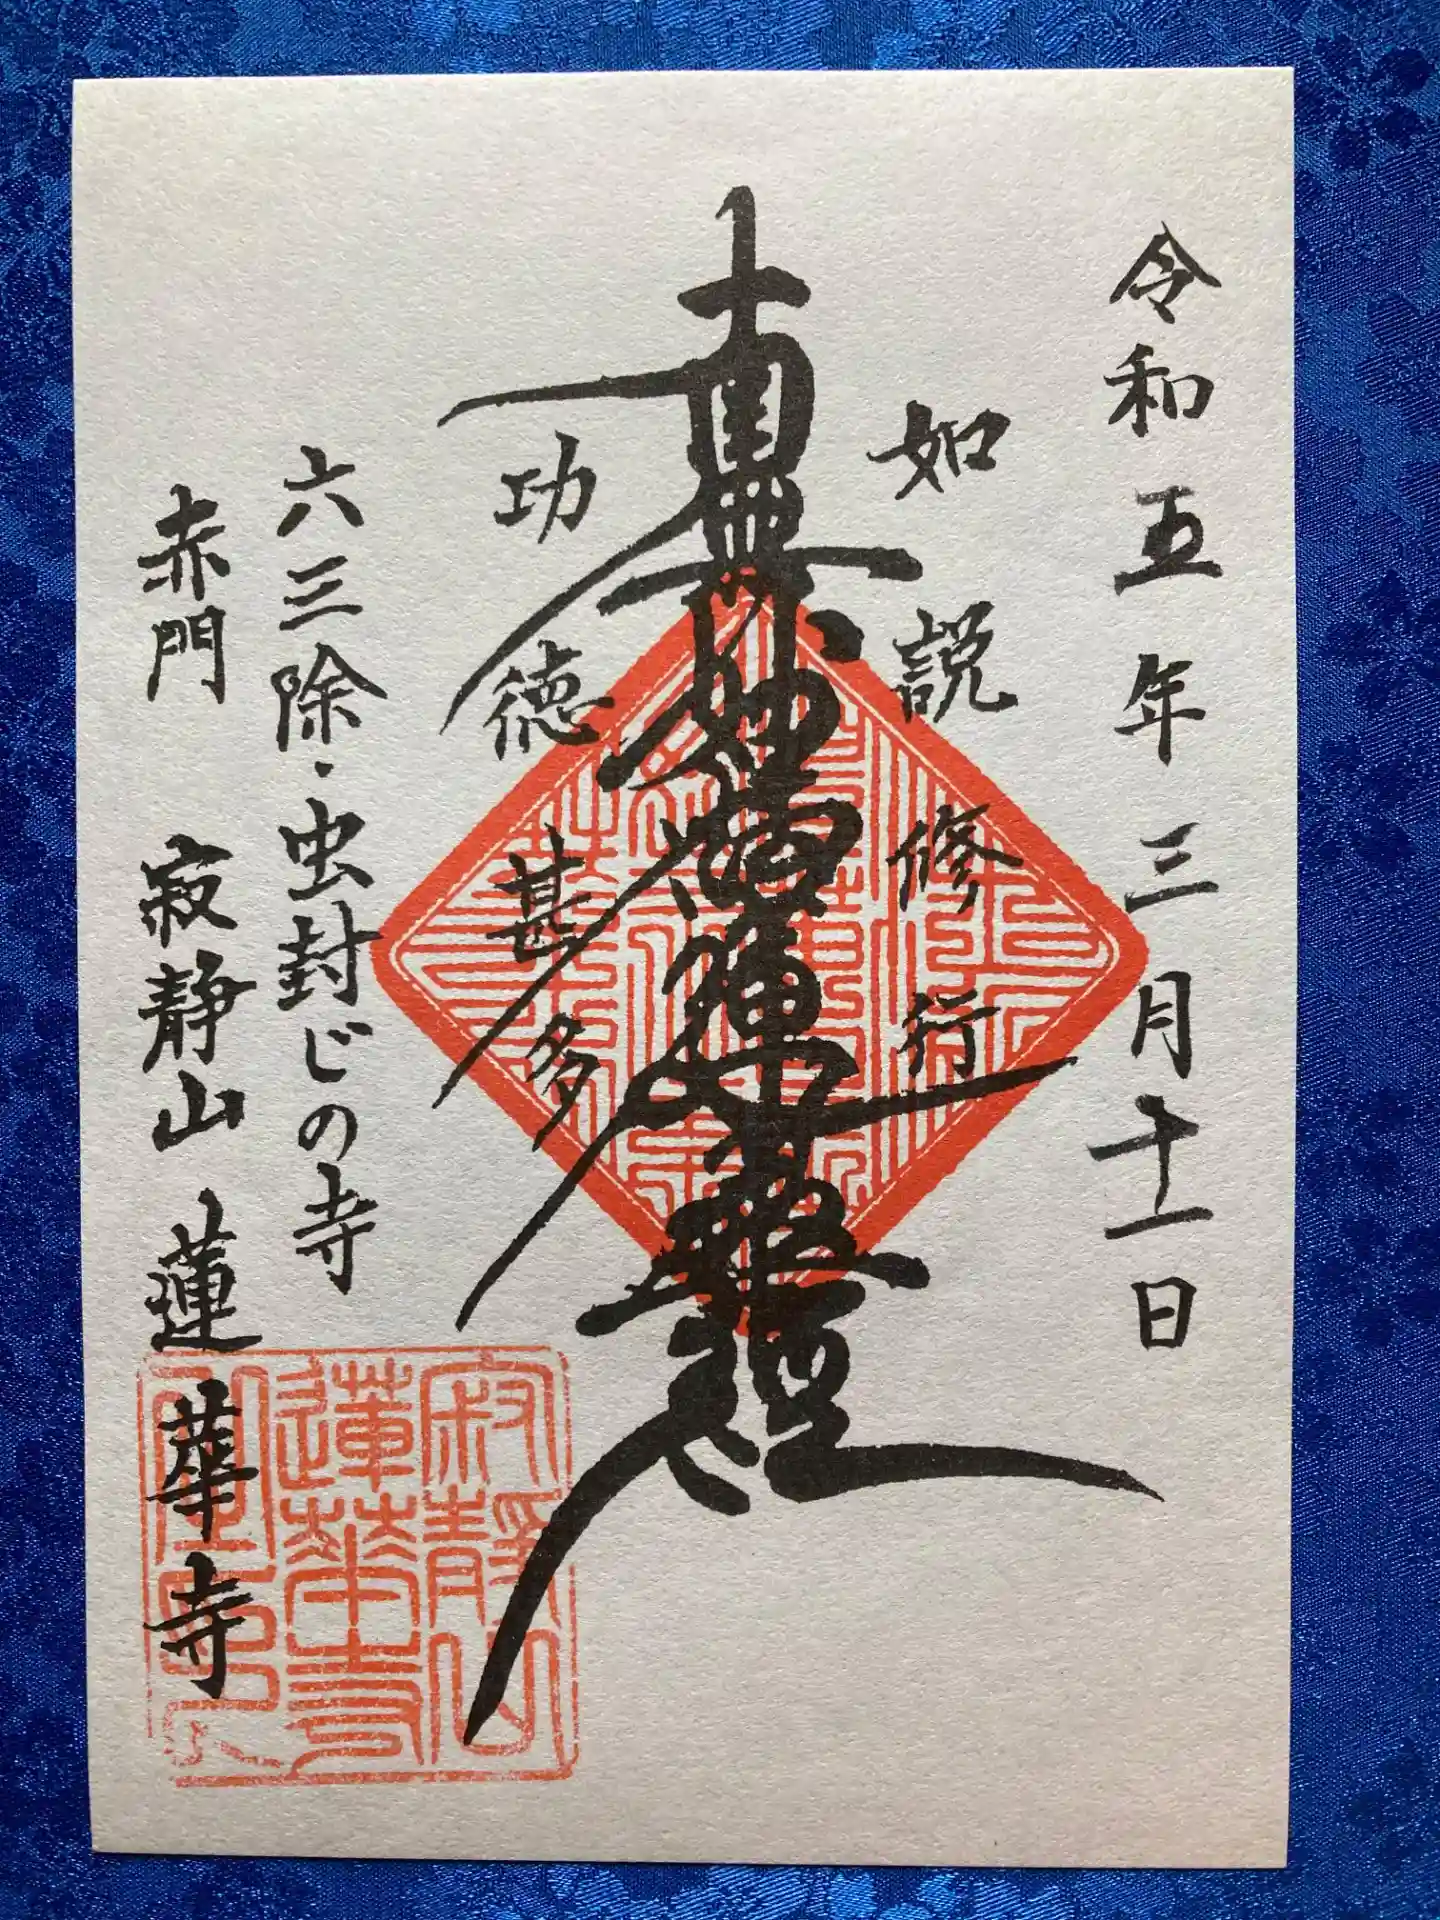 令和五年三月十一日
如説修行
南無妙法蓮華経
功徳甚多
六三除・虫封じの寺
赤門 寂静山 蓮華寺
寂静山
蓮華寺